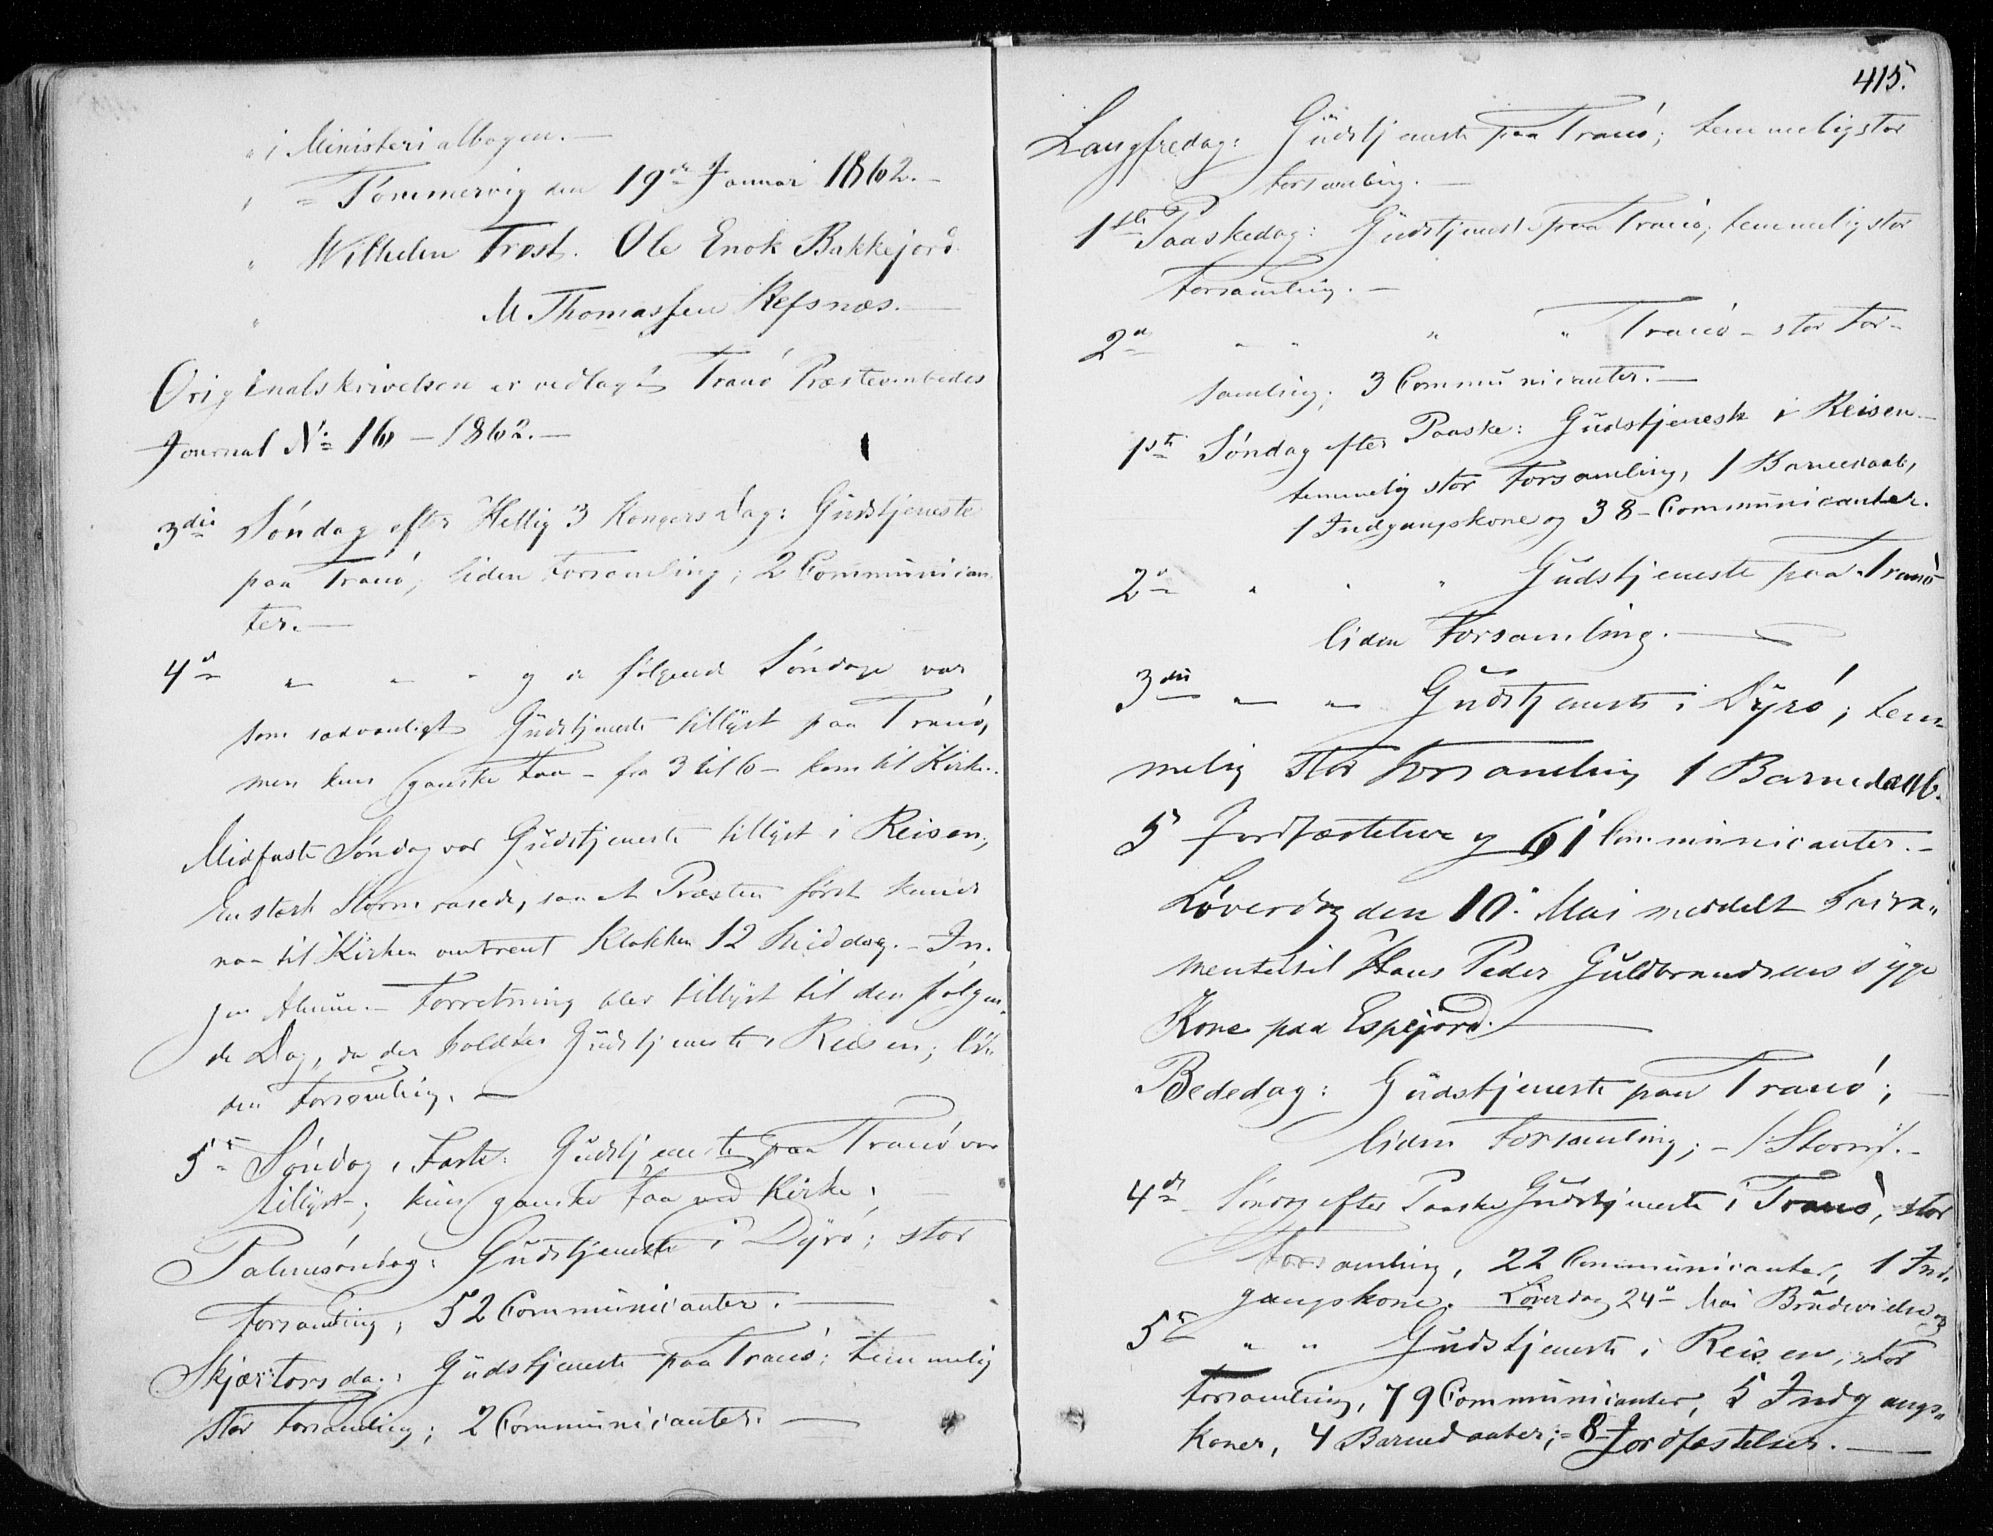 " i Ministerialbogen. —
" = Tömmervig den 19de Januar 1862. —
" Wilhelm Frost. Ole Enok Bakkejord
" M Thomassen Refsnæs. —
Originalskrivelsen er vedlagt Tranö Præsteembedes
Journal No 16 — 1862. —
3die Söndag efter Hellig 3 Kongers Dag: Gudstjeneste
paa Tranö; liden Forsamling; 2 Communican
ter. —
4de " " " og de fölgende Söndage var
som sædvanligt Gudstjeneste tillyst paa Tranö,
men kun ganske Faa — fra 3 til 6 — kom til Kirke.
Midfaste Söndag var Gudstjeneste tillyst i Reisen;
En stærk Storm rasede, saa at Præsten först kunde
naa til Kirken omtrent Klokken 12 Middag. — In-
gen Almue. — Forretning blev tillyst til den fölgen-
de Dag, da der holdtes Gudstjeneste i Reisen; li-
den Forsamling. —
5te Söndag i Faste: Gudstjeneste paa Tranö var
tillyst; kun ganske Faa ved Kirke;
Palmesöndag: Gudstjeneste i Dyrö; stor
Forsamling; 52 Communicanter. —
Skjærtorsda.: Gudstjeneste paa Tranö; temmelig
stor Forsamling; 2 Communicanter. —
415.
Langfredag: Gudstjeneste paa Tranö; temmelig stor
Forsamling. —
1ste Paaskedag: Gudstjeneste paa Tranö; temmelig stor
Forsamling. —
2den " " " " Tranö — stor For-
samling; 3 Communicanter. —
1ste Söndag efter Paaske: Gudstjeneste i Reisen —
temmelig stor Forsamling, 1 Barnedaab,
1 Indgangskone og 38 Communicanter.
2den " " " Gudstjeneste paa Tranö
liden Forsamling. —
3die " " Gudstjeneste i Dyrö; tem-
melig stor Forsamling 1 Barnedaab.
5 Jordfæstelser og 61 Communicanter. —
Löverdag den 10de Mai meddelt Sacra-
mentet til Hans Peder Guldbrandsens syge
Kone paa Espejord. —
Bededag: Gudstjeneste paa Tranö; —
liden Forsamling; — /Storm/. —
4de Söndag efter Paaske Gudstjeneste i Tranö, stor
Forsamling, 22 Communicanter, 1 Ind-
gangskone. Löverdag 24de Mai Brudevielse
5te " " Gudstjeneste i Reisen; stor
Forsamling, 79 Communicanter, 5 Indgangs-
koner, 4 Barnedaaber; — 8 Jordfæstelser. —